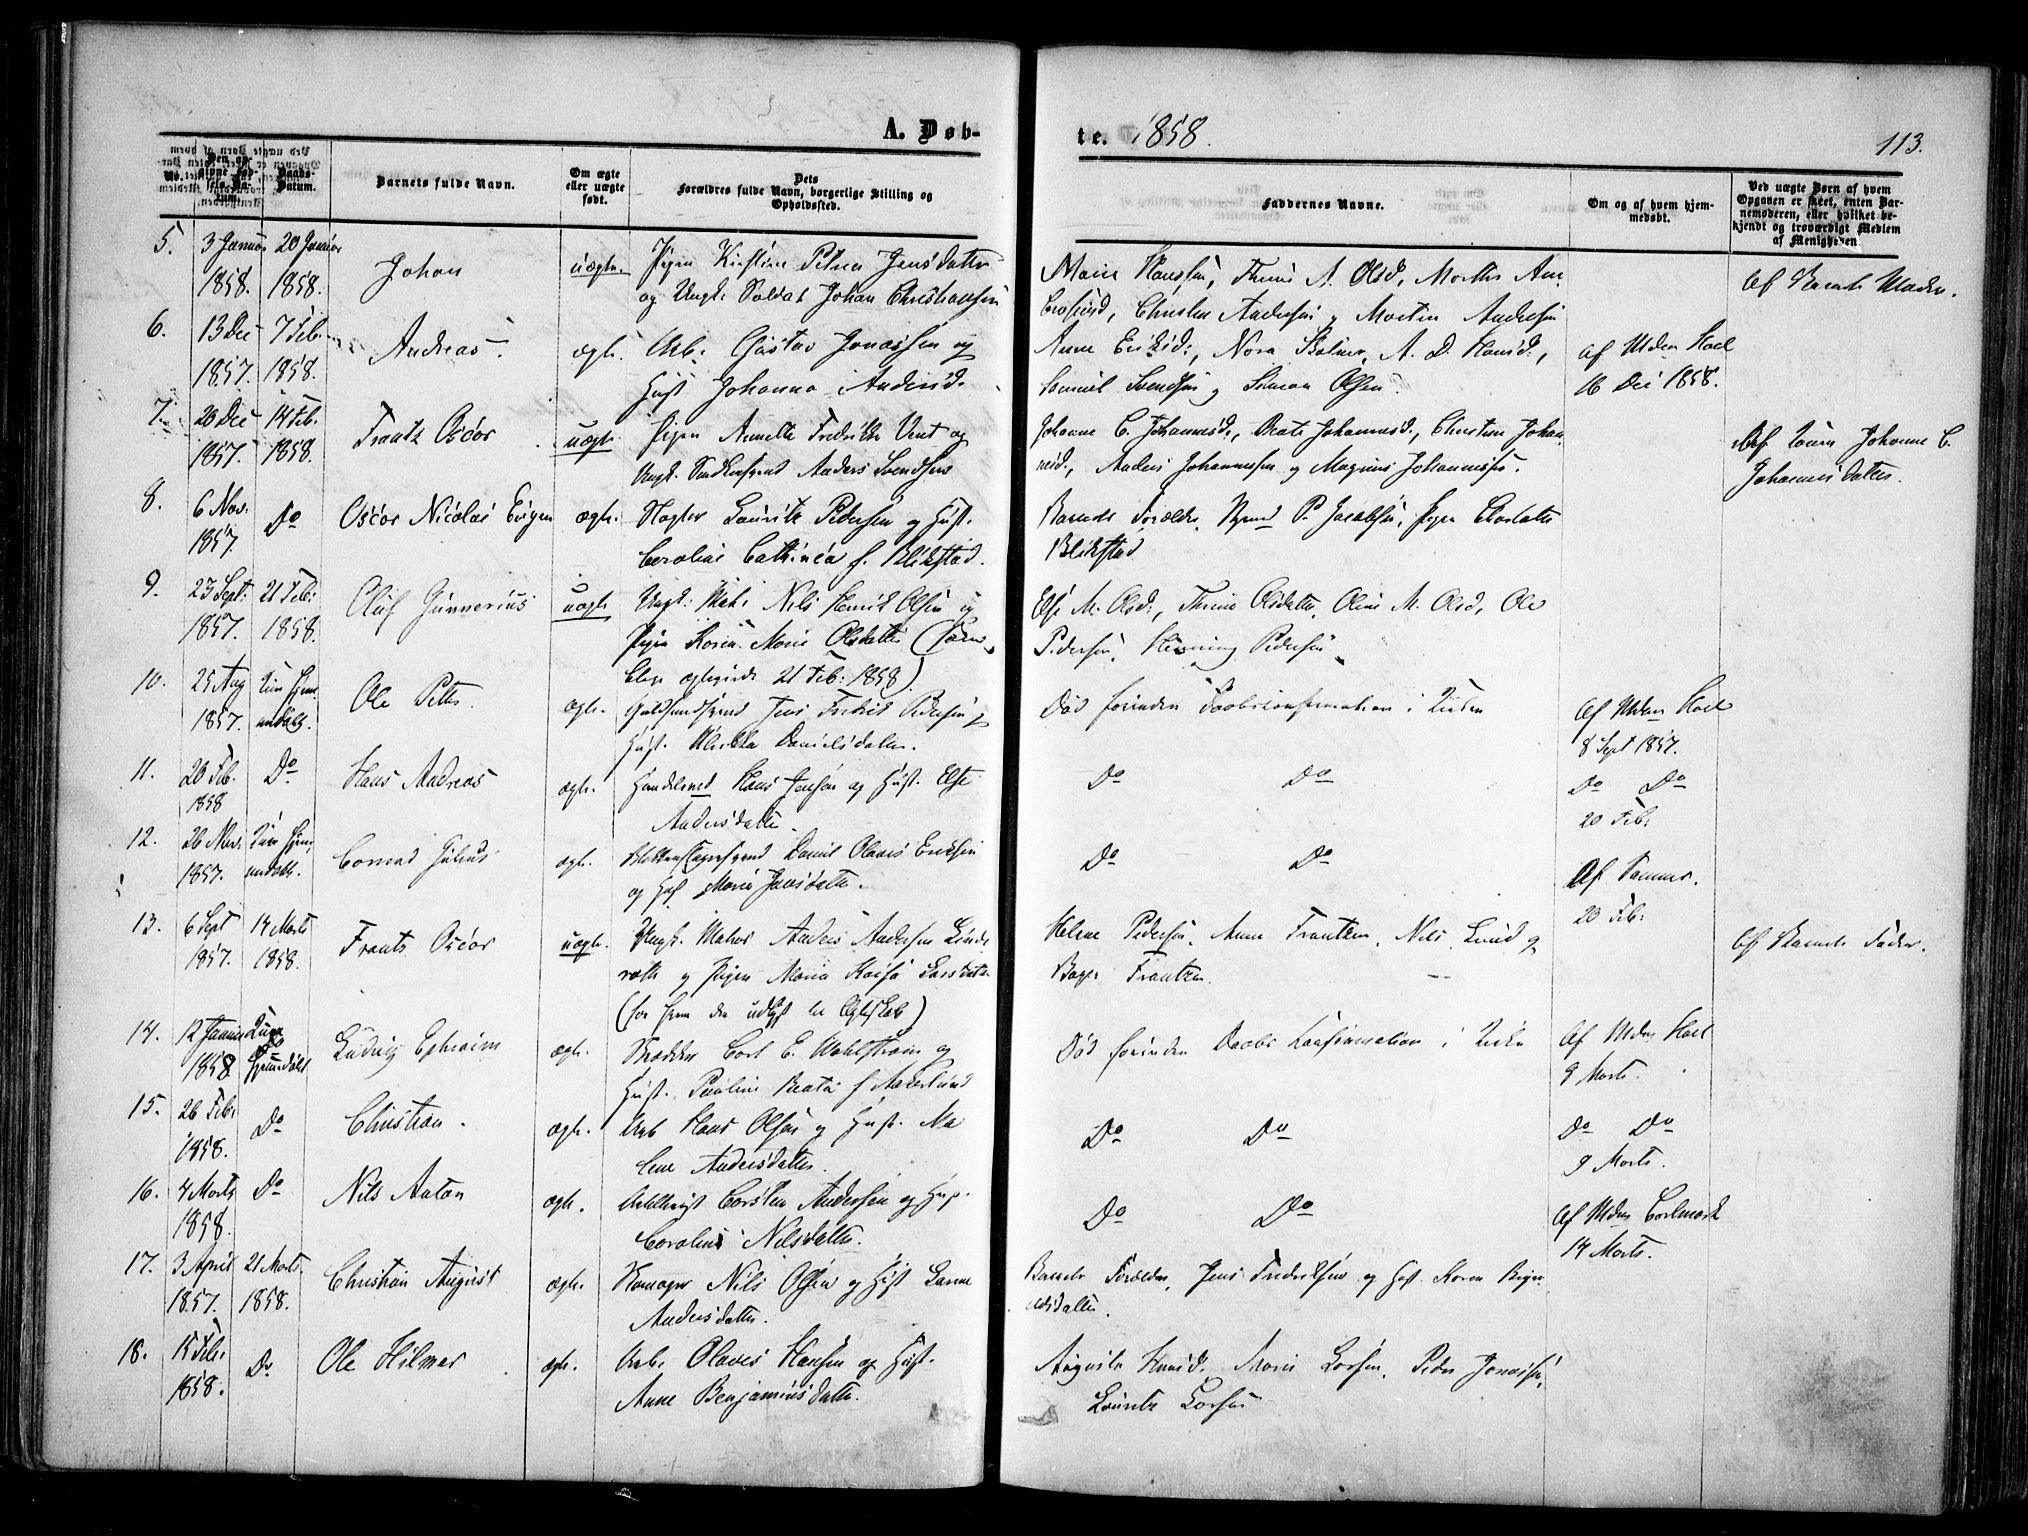 A. Døb-
te. 1858.
113.
No.
Den op-
givne Fød-
sels Da-
tum.
Daabs-
Datum.
Barnets fulde Navn.
Om ægte
eller uægte
født.
Dets
Forældres fulde Navn, borgerlige Stilling og
Opholdssted.
Faddernes Navne.
Om og af hvem hjem-
medøbt.
Ved uægte Børn af hvem
Opgaven er skeet, enten Bar-
nemoderen, eller hvilket be-
kjendt og troværdigt Medlem
af Menigheden
5. 3 Januar 1858. 20 Januar 1858. Johan uægte. Pigen Kirstine Petrea Jensdatter
og Ungk: Soldat Johan Christiansen
Marie Hansen, Thrine A. Olsd, Marthe Am-
brosiusd, Christen Andersen, Morten Andersen
Af Barnets Moder.
6. 13 Dec 1857. 7 Feb. 1858. Andreas. ægte. Arb: Gustav Jonassen og
Hust Johanna Andersd.
Anne Eriksd:, Nora Steiner, A. D. Hansd:,
Samuel Svendsen og Simon Olsen.
Af Mdm Hoel
16 Dec 1858.
7. 20 Dec 1857. 14 Feb. 1858. Frantz Oscar uægte Pigen Annette Fredrikke Vent og
Ungk. Anders Svendsen
Johanne C. Johannesd:, Beate Johannesd., Christine Johan-
nesd., Anders Johannesen og Magnus Johannesen.
Af Johanne C.
Johannesdatter.
8. 6 Nov. 1857. Do Oscar Nicolai Eugen ægte. Slagter Lauritz Pedersen og Hust.
Caroline Cathinca f. Blikstad.
Barnets Forældre, P. Jacobsen, Pigen Charlotte
Blikstad
9. 23 Sept: 1857. 21 Feb: 1858. Oluf Gunnerius uægte Ungk: Nils Henrik Olsen og
Pigen Karen Marie Olsdatter
21 Feb: 1858)
Else M. Olsd:, Thrine Olsdatter, Oline M. Olsd, Ole
Pedersen, Henning Pedersen
10. 25 Aug 1857. Kun hjem-
medøbt. Ole Petter ægte. Jens Fredrik Pedersen og
Hust. Ulrikka Danielsdatter.
Død forinden Daabsconfirmation i Kirken
Af Mdm Hoel
8 Sept 1857.
11. 20 Feb. 1858 Do Hans Andreas ægte. Handelsmd Hans Jensen og Hust. Else
Andersdatter.
Do Do
Do Do
20 Feb:
12. 26 Nov. 1857. Kun hjem-
medøbt. Conrad Julius ægte. Daniel Olaves Eriksen
og Hust Marie Jansdatter.
Do Do
Af Samme.
20 Feb:
13. 6 Sept 1857. 14 Marts 1858. Frants Oscar uægte. Ungk. Matros Anders Andersen Linde-
roth og Pigen Maria Kaisa Larsdatter
Helene Pedersen, Anne Frantzen, Nils Lund og
Frantzen.
Af Barnets Fader.
14. 12 Januar 1858 Kun
hjemmedøbt Ludvig Ephraim ægte. Skrædder Carl E. Wahlstrøm og
Hust. Pauline Beata f. Aakerlund
Død forinden Daabs Konfirmation i Kirken
Af Mdm Hoel
9 Marts.
15. 26 Feb: 1858. Do Christian. ægte. Arb Hans Olsen og Hust. Ma-
lene Andersdatter.
Do Do
Do Do
9 Marts.
16. 4 Marts 1858. Do Nils Anton ægte. Corsten Andersen og Hust.
Caroline Nilsdatter.
Do Do
Af Mdm Carlmark
14 Marts.
17. 3 April 1857. 21 Marts 1858. Christian August ægte. Nils Olsen og Hust Karen
Andersdatter.
Barnets Forældre, Jens Fredriksen og Hust Karen
18. 15 Feb. 1858. Do Ole Hilmar ægte. Arb. Olaves Hansen og Hust.
Anne Benjaminsdatter.
Auguste Hansd. Marie Larsen. Peder Jonassen,
Lauritz Larsen